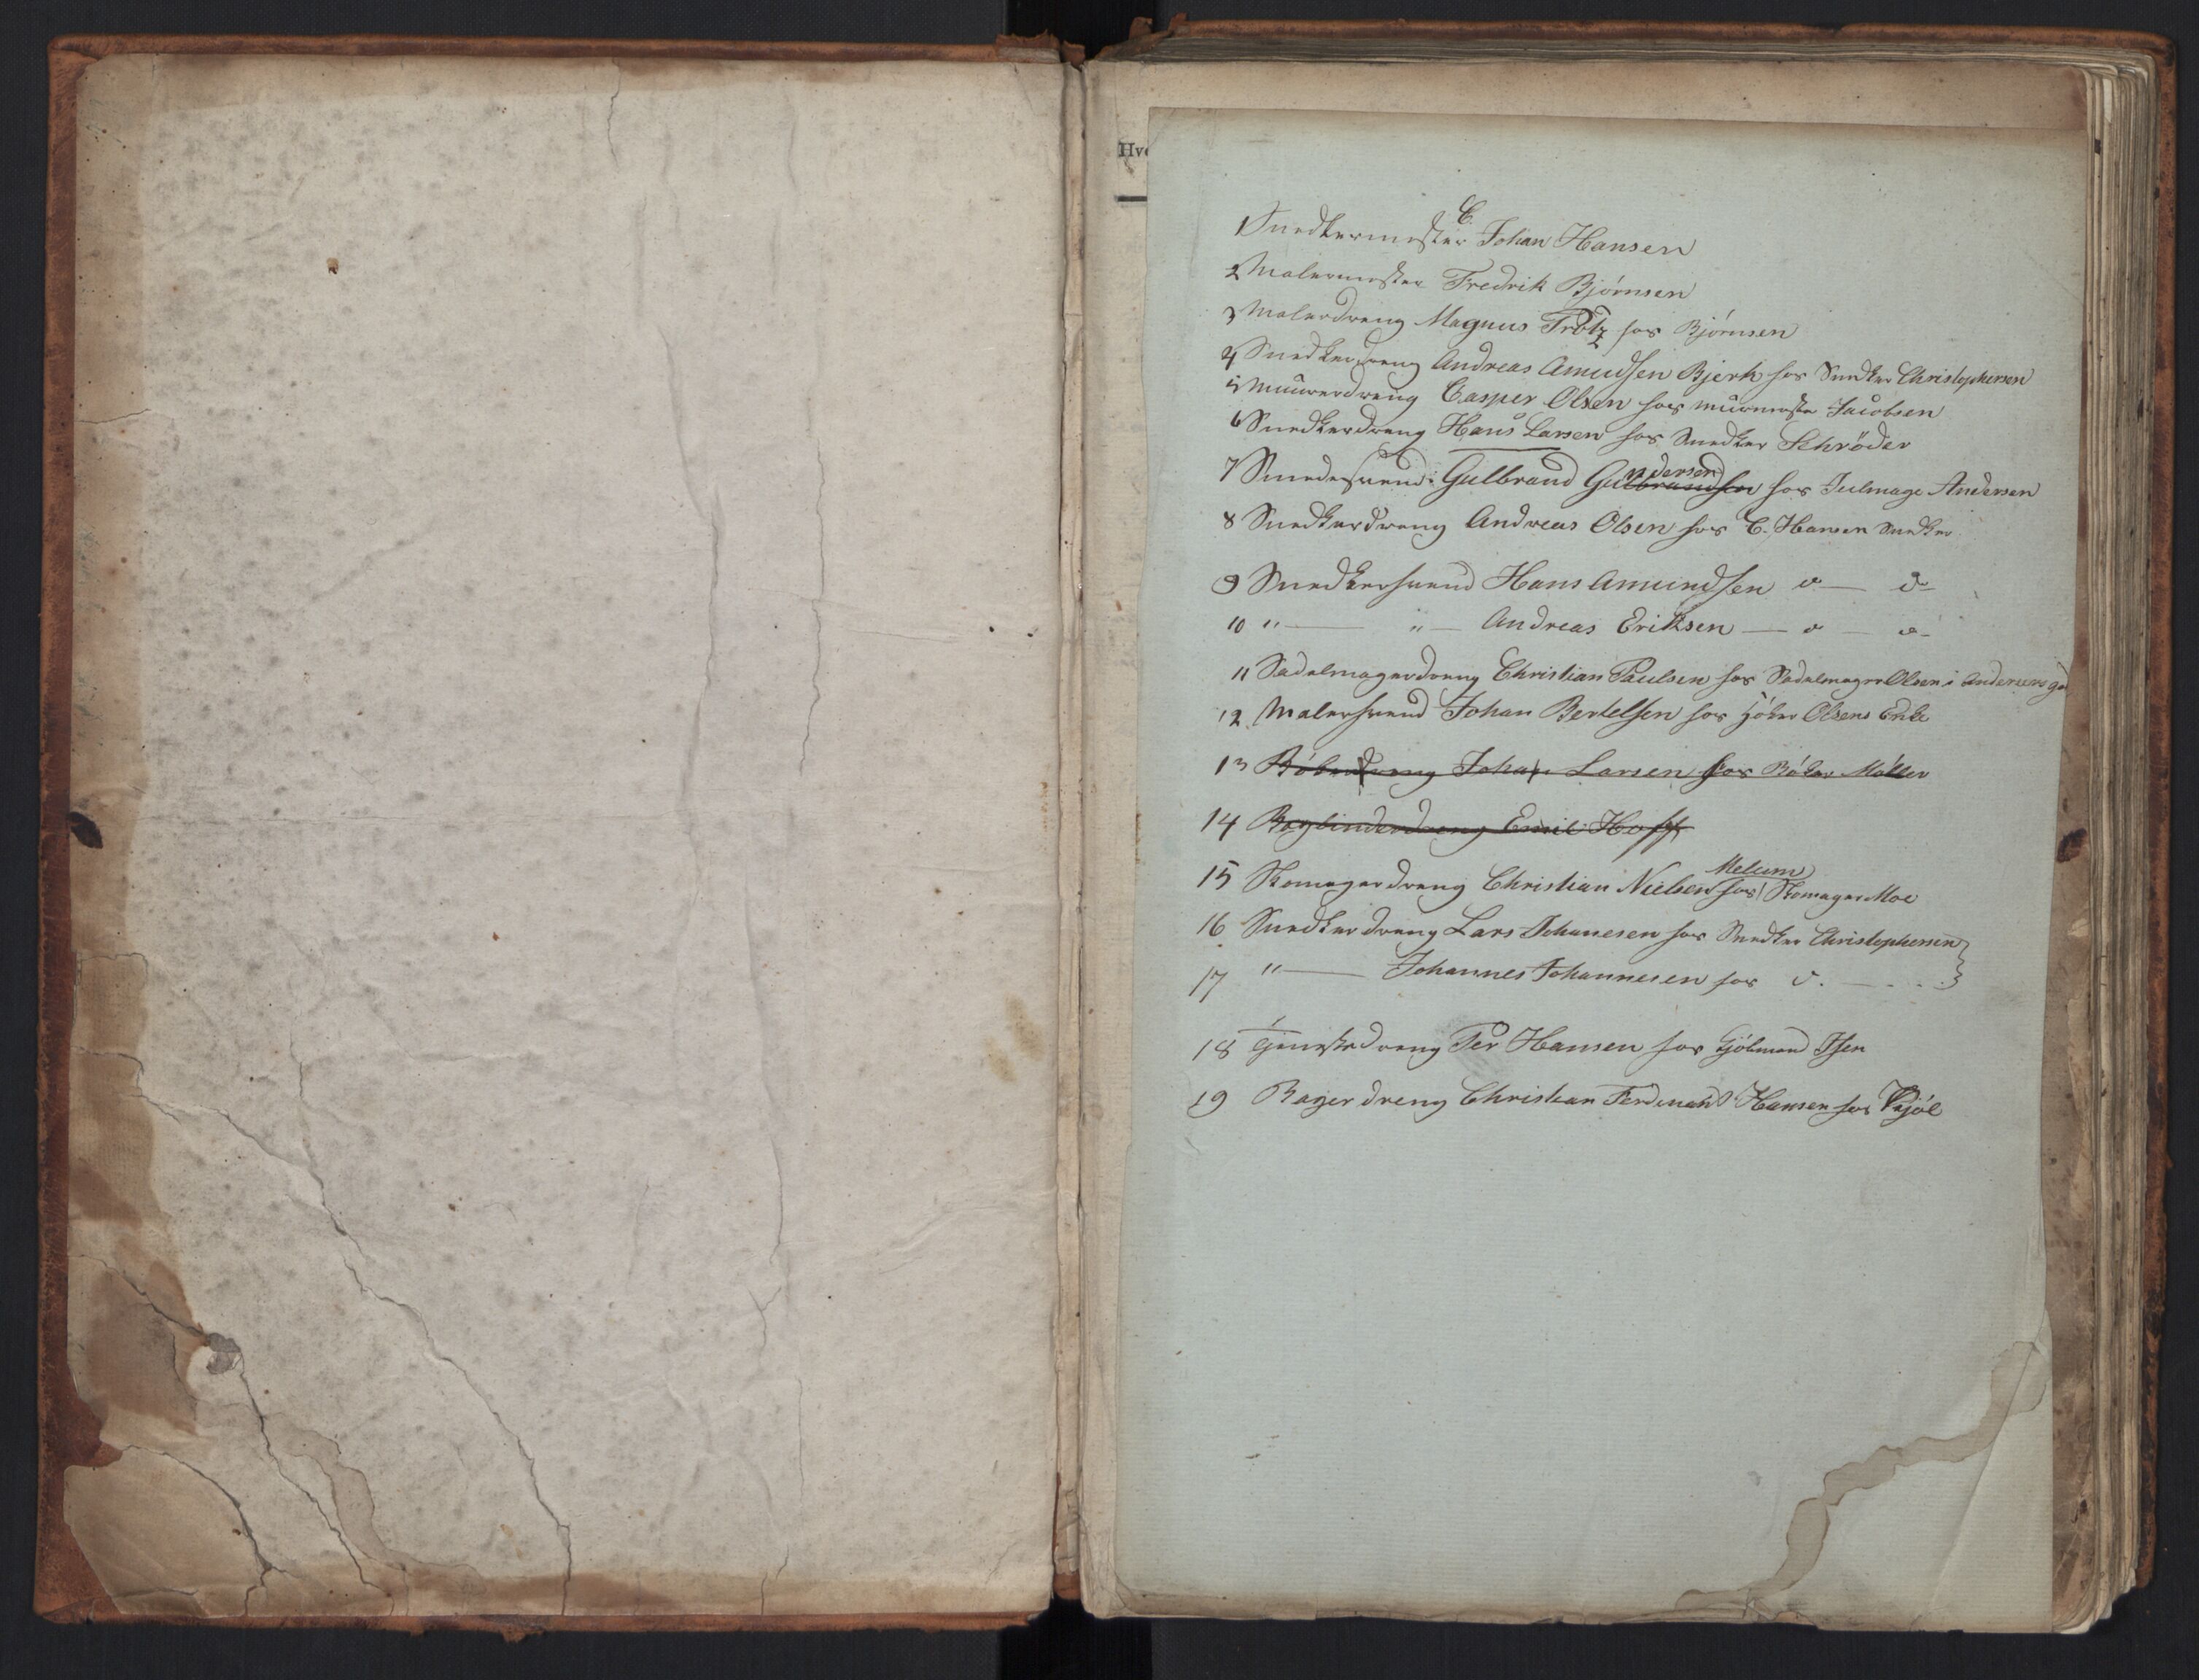 Hve
C.
1 Snedkermester Johan Hansen
2 Malermester Fredrik Bjørnsen
3 Malerdreng Magnus hos Bjørnsen
4 Snedkerdreng Andreas Amundsen Bjerk hos Snedker Christophersen
5 Muurerdreng Casper Olsen hos muurmester Jacobsen
6 Snedkerdreng Hans Larsen hos Snedker Schrøder
ndersen
7 Smedesvend Gulbrand Gulbrandsen hos Julmage Andersen
8 Snedkerdreng Andreas Olsen hos C. Hansen Snedker
9 Snedkersvend Hans Amundsen d — d
10 " — " — Andreas Eriksen — d — d
11 Sadelmagerdreng Christian Paulsen hos Sadelmager Olsen i Andersens
12 Malersvend Johan Bertelsen hos Olsens Enke
13 Johan Larsen hos Møller
14 Bogbinderdreng Emil Hoff
Melum
15 Skomagerdreng Christian Nielsen hos Skomager Moe
16 Snedkerdreng Lars Johanesen hos Snedker Christophersen
17 " — Johannes Johannesen hos d.
18 Tjenestedreng Per Hansen hos Kjøbmand
19 Bagerdreng Christian Ferdinand Hansen hos